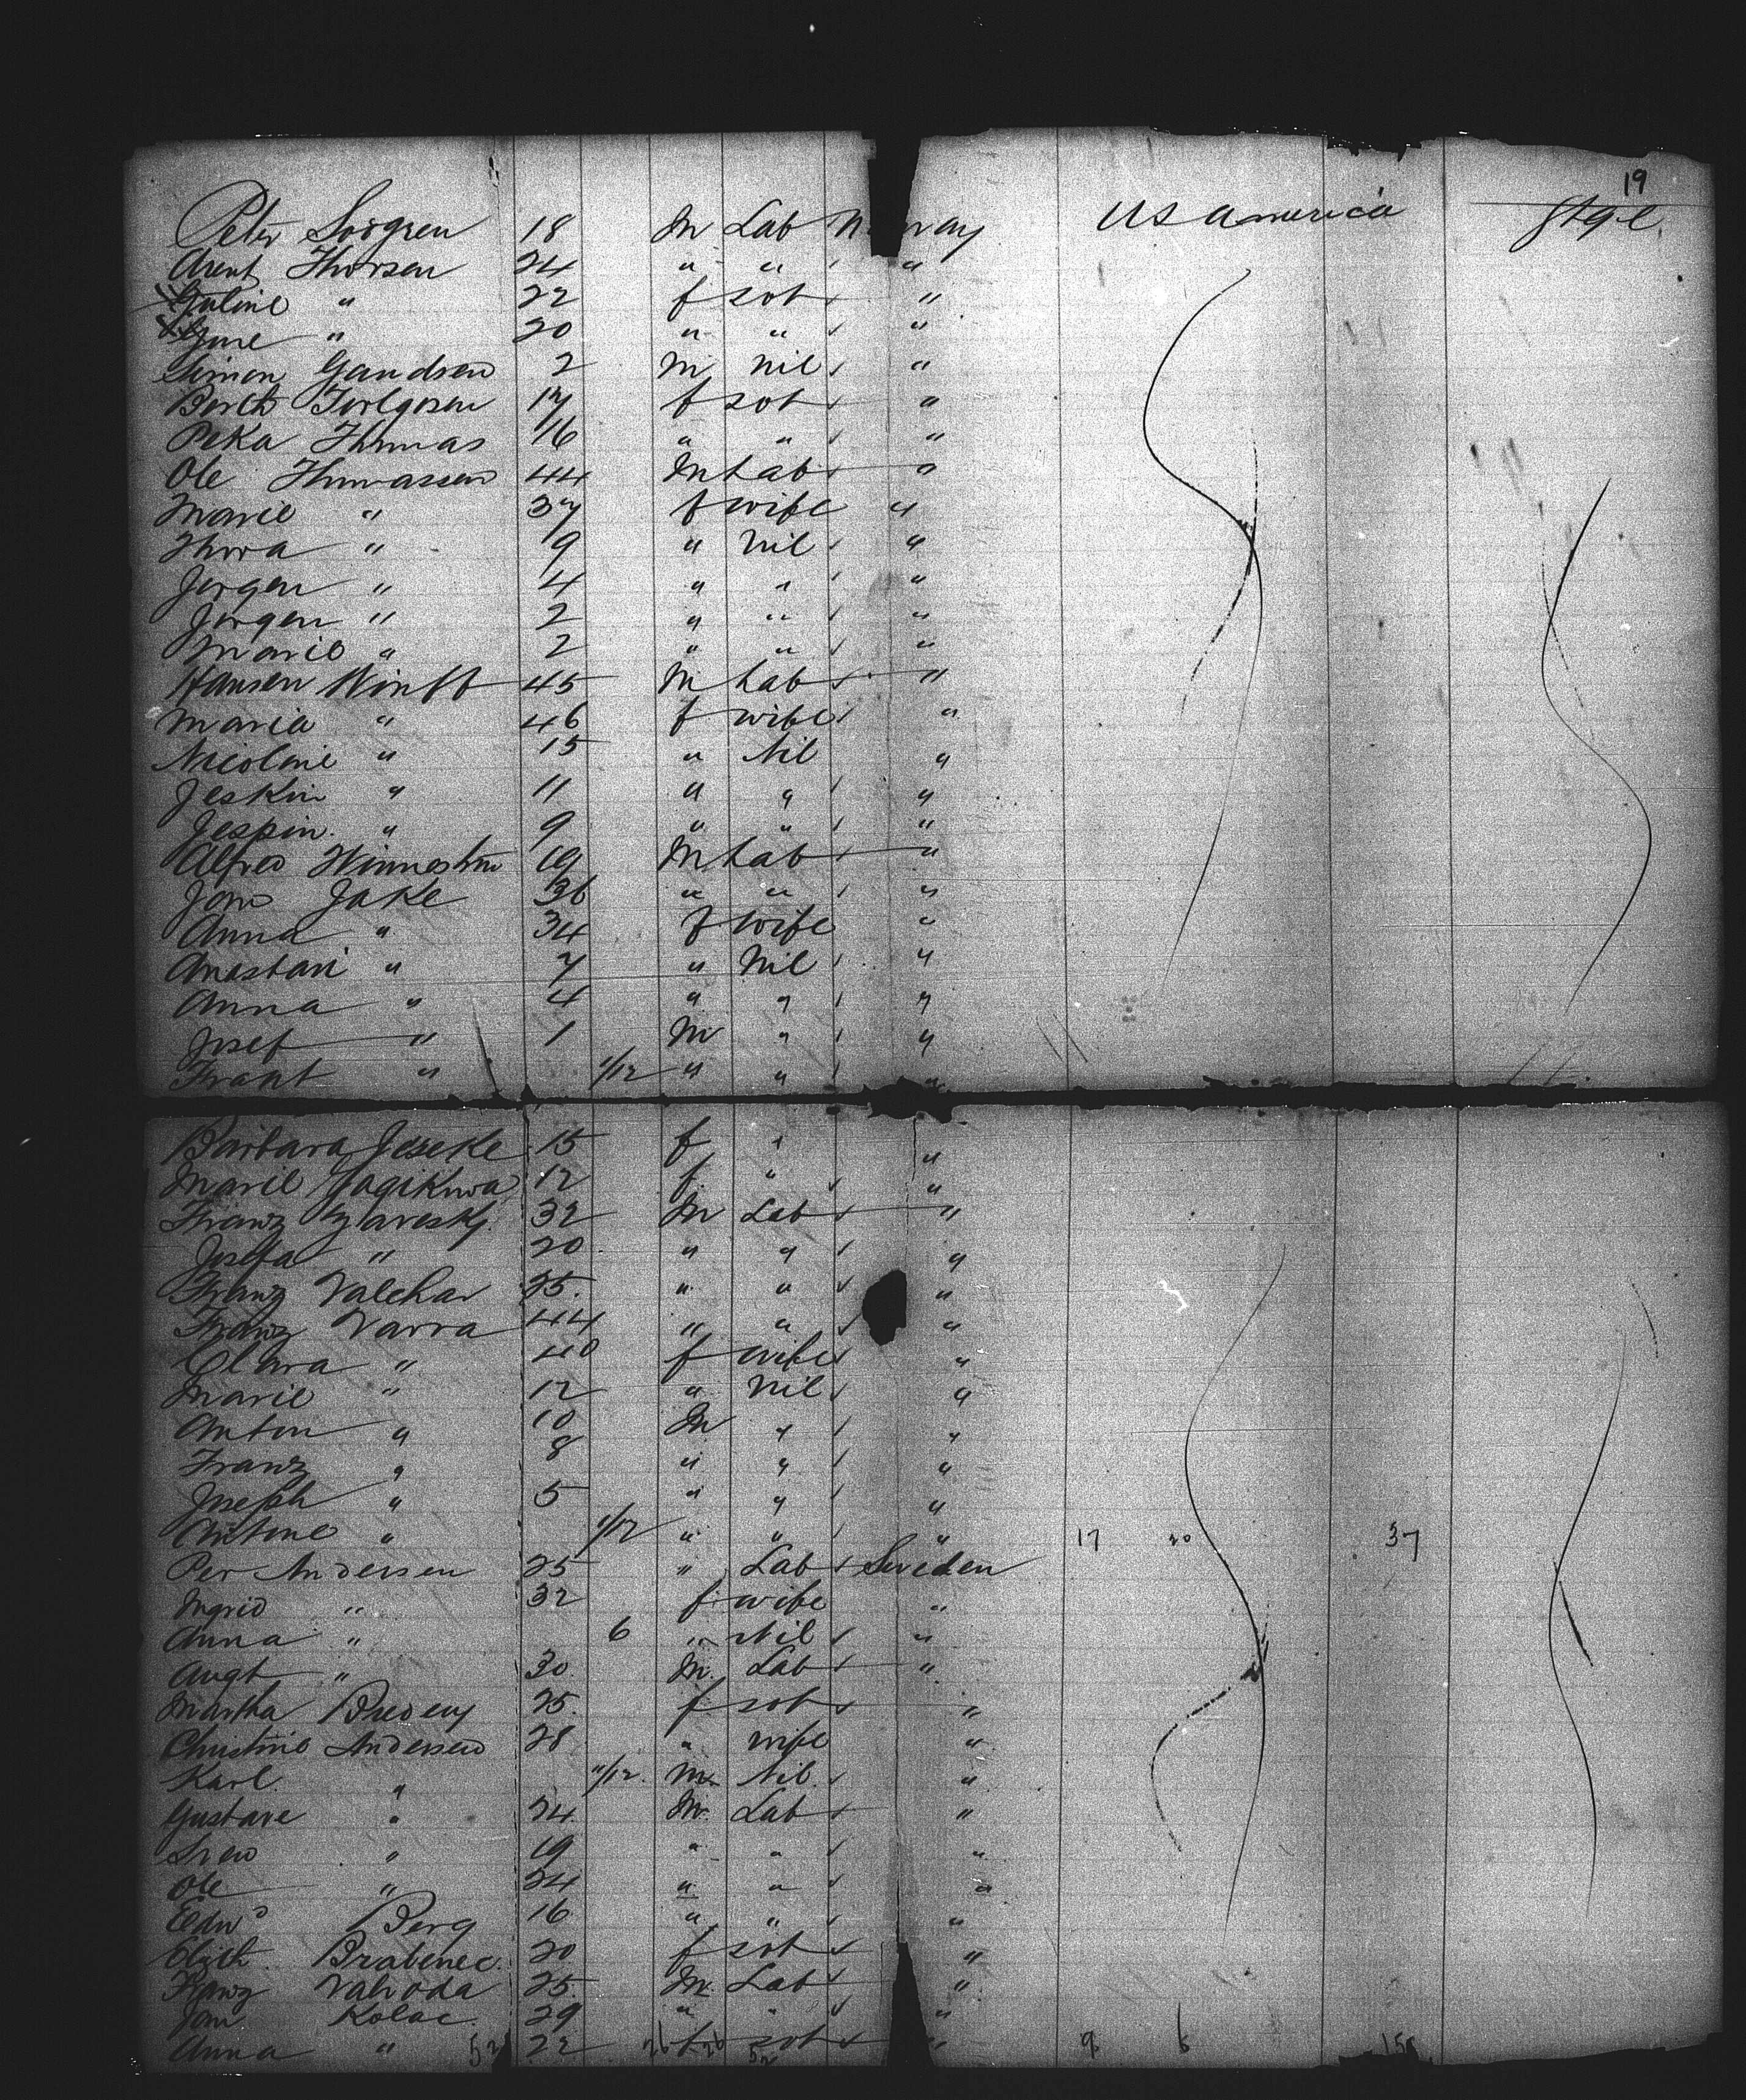 19
Peter Sorgren 18 M Lab N way US america Stge
Arent Thorsen 24 " " "
Galine " 22 f sot "
" 20 " " "
Simon Gandsen 2 M Nil "
Berth Torlgesen 17 f sot "
Peka Thomas 16 " " "
Ole Thomassen 44 M Lab "
Marie " 37 f wife "
Thora " 9 " Nil "
Jorgen " 4 " " "
Jorgen " 2 " " "
Marie " 2 " " "
Hansen 45 M Lab "
Maria " 46 f wife "
Nicoline " 15 " Nil "
Jeskin " 11 " " "
Jespin " 9 " " "
Alfred 19 M Lab "
Jom Jake 36 " " "
Anna " 34 f wife "
Anastasi " 7 " Nil "
Anna " 4 " " "
Josef " 1 M " "
Frant " 1/12 " " "
Barbara Jeseke 15 f " "
Marie Jagikwa 12 f " "
Franz 32 M Lab "
Josefa " 20 " " "
Franz Valchar 25 " " "
Franz Varra 44 " " "
Clara " 40 f wife "
Marie " 12 " Nil "
Anton " 10 M " "
Franz " 8 " " "
Joseph " 5 " " "
Antone " 1/12 " " " 17 20 37
Per Andersen 25 " Lab Sweden
Ingrid " 32 f wife "
Anna " 6 " Nil "
Augt " 30 M Lab "
Martha 25 f sot "
Christine Andersen 28 " wife "
Karl " 11/12 M Nil "
Gustave " 24 M Lab "
Sven " 19 " " "
Ole " 24 " " "
Edwd Berg 16 " " "
Elizth Brabenec 20 f sot "
Franz Vahoda 25 M Lab "
Jan Kolac 29 " " "
Anna " 52 22 26 f 26 sot 52 " 9 6 15